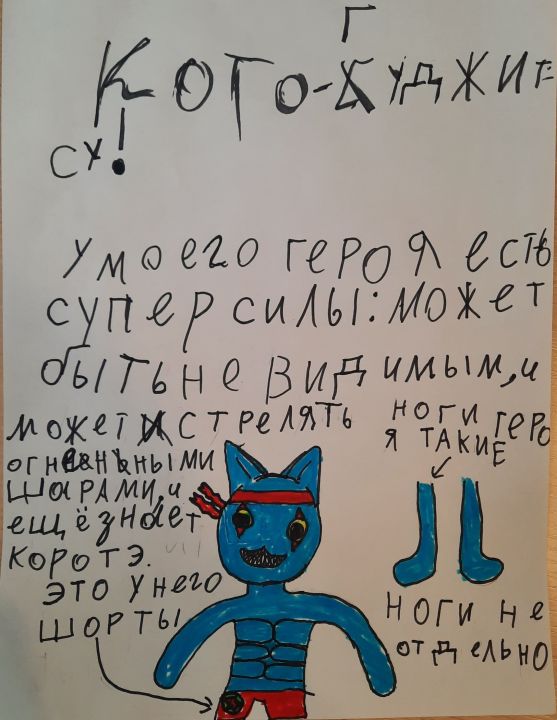 Г
КОТО-ХУДЖИТ
СУ!
У моего героя есть
супер силы: может
быть не видимым, и
может стрелять
огненьными
шарами, и
ещё знает
коротэ.
это у него
шорты
ноги геро
я такие
ноги не
отдельно